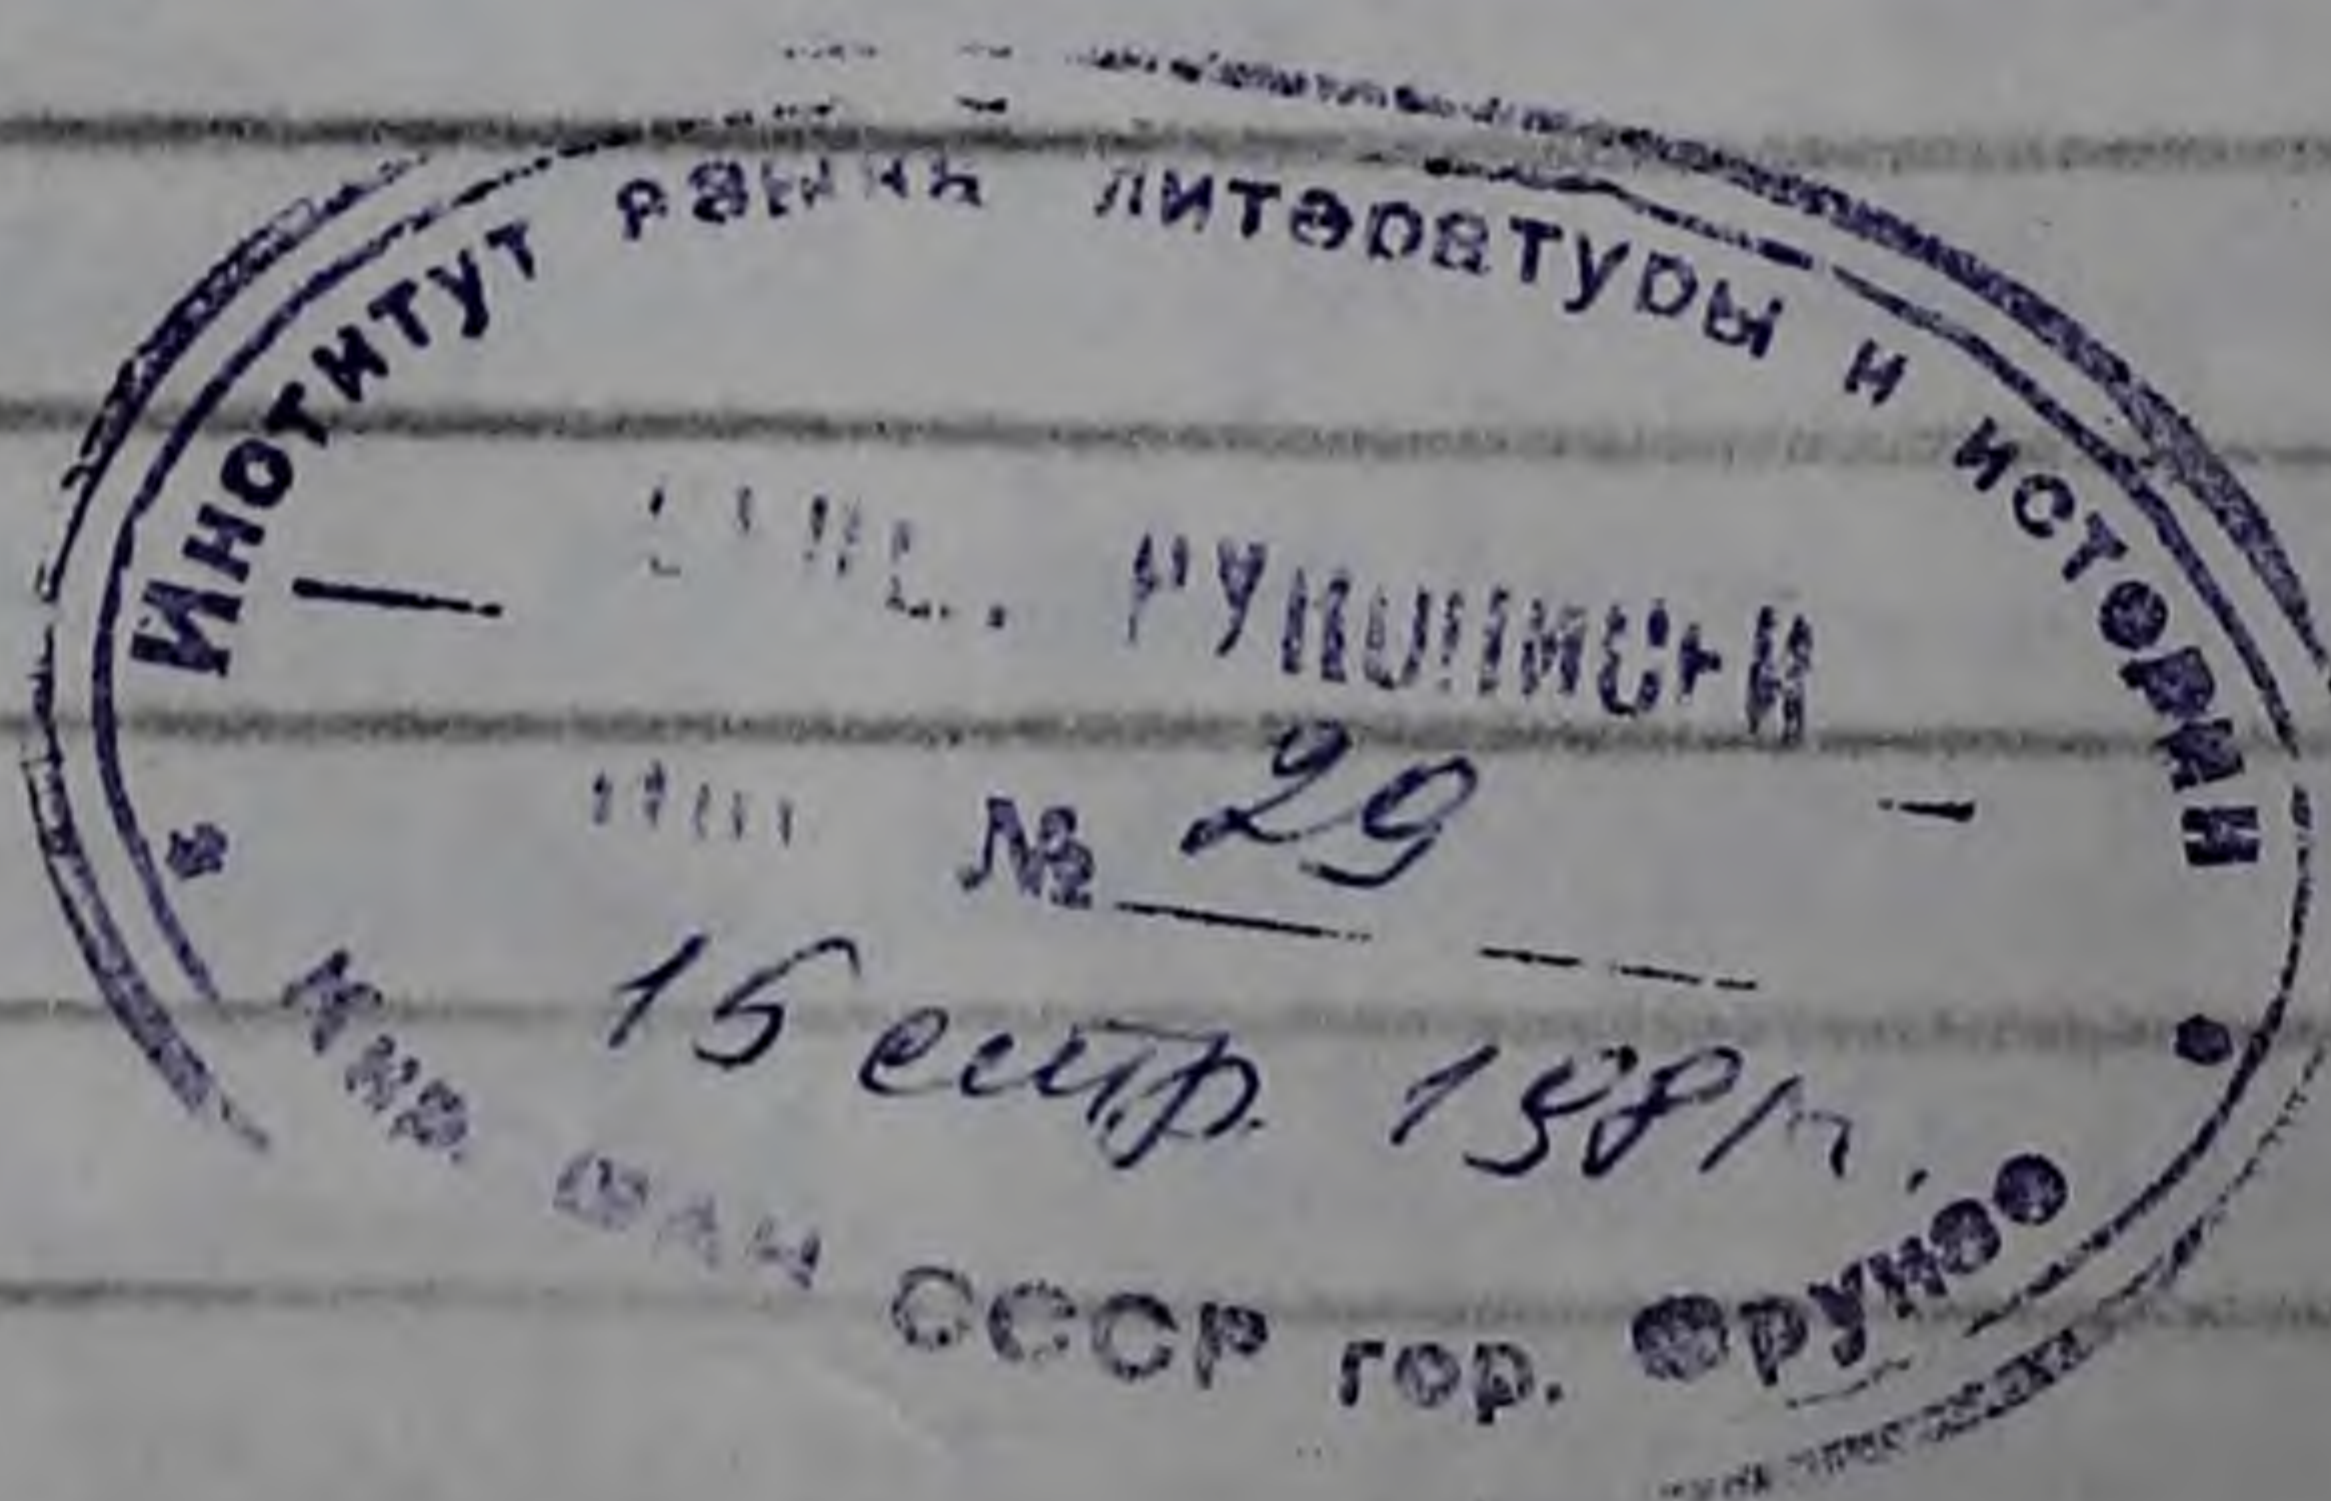 Институт языка литературы и истории
рукописи
№ 29
15 сентр. 1981г.
Кир. ФАН СССР гор. Фрунзе